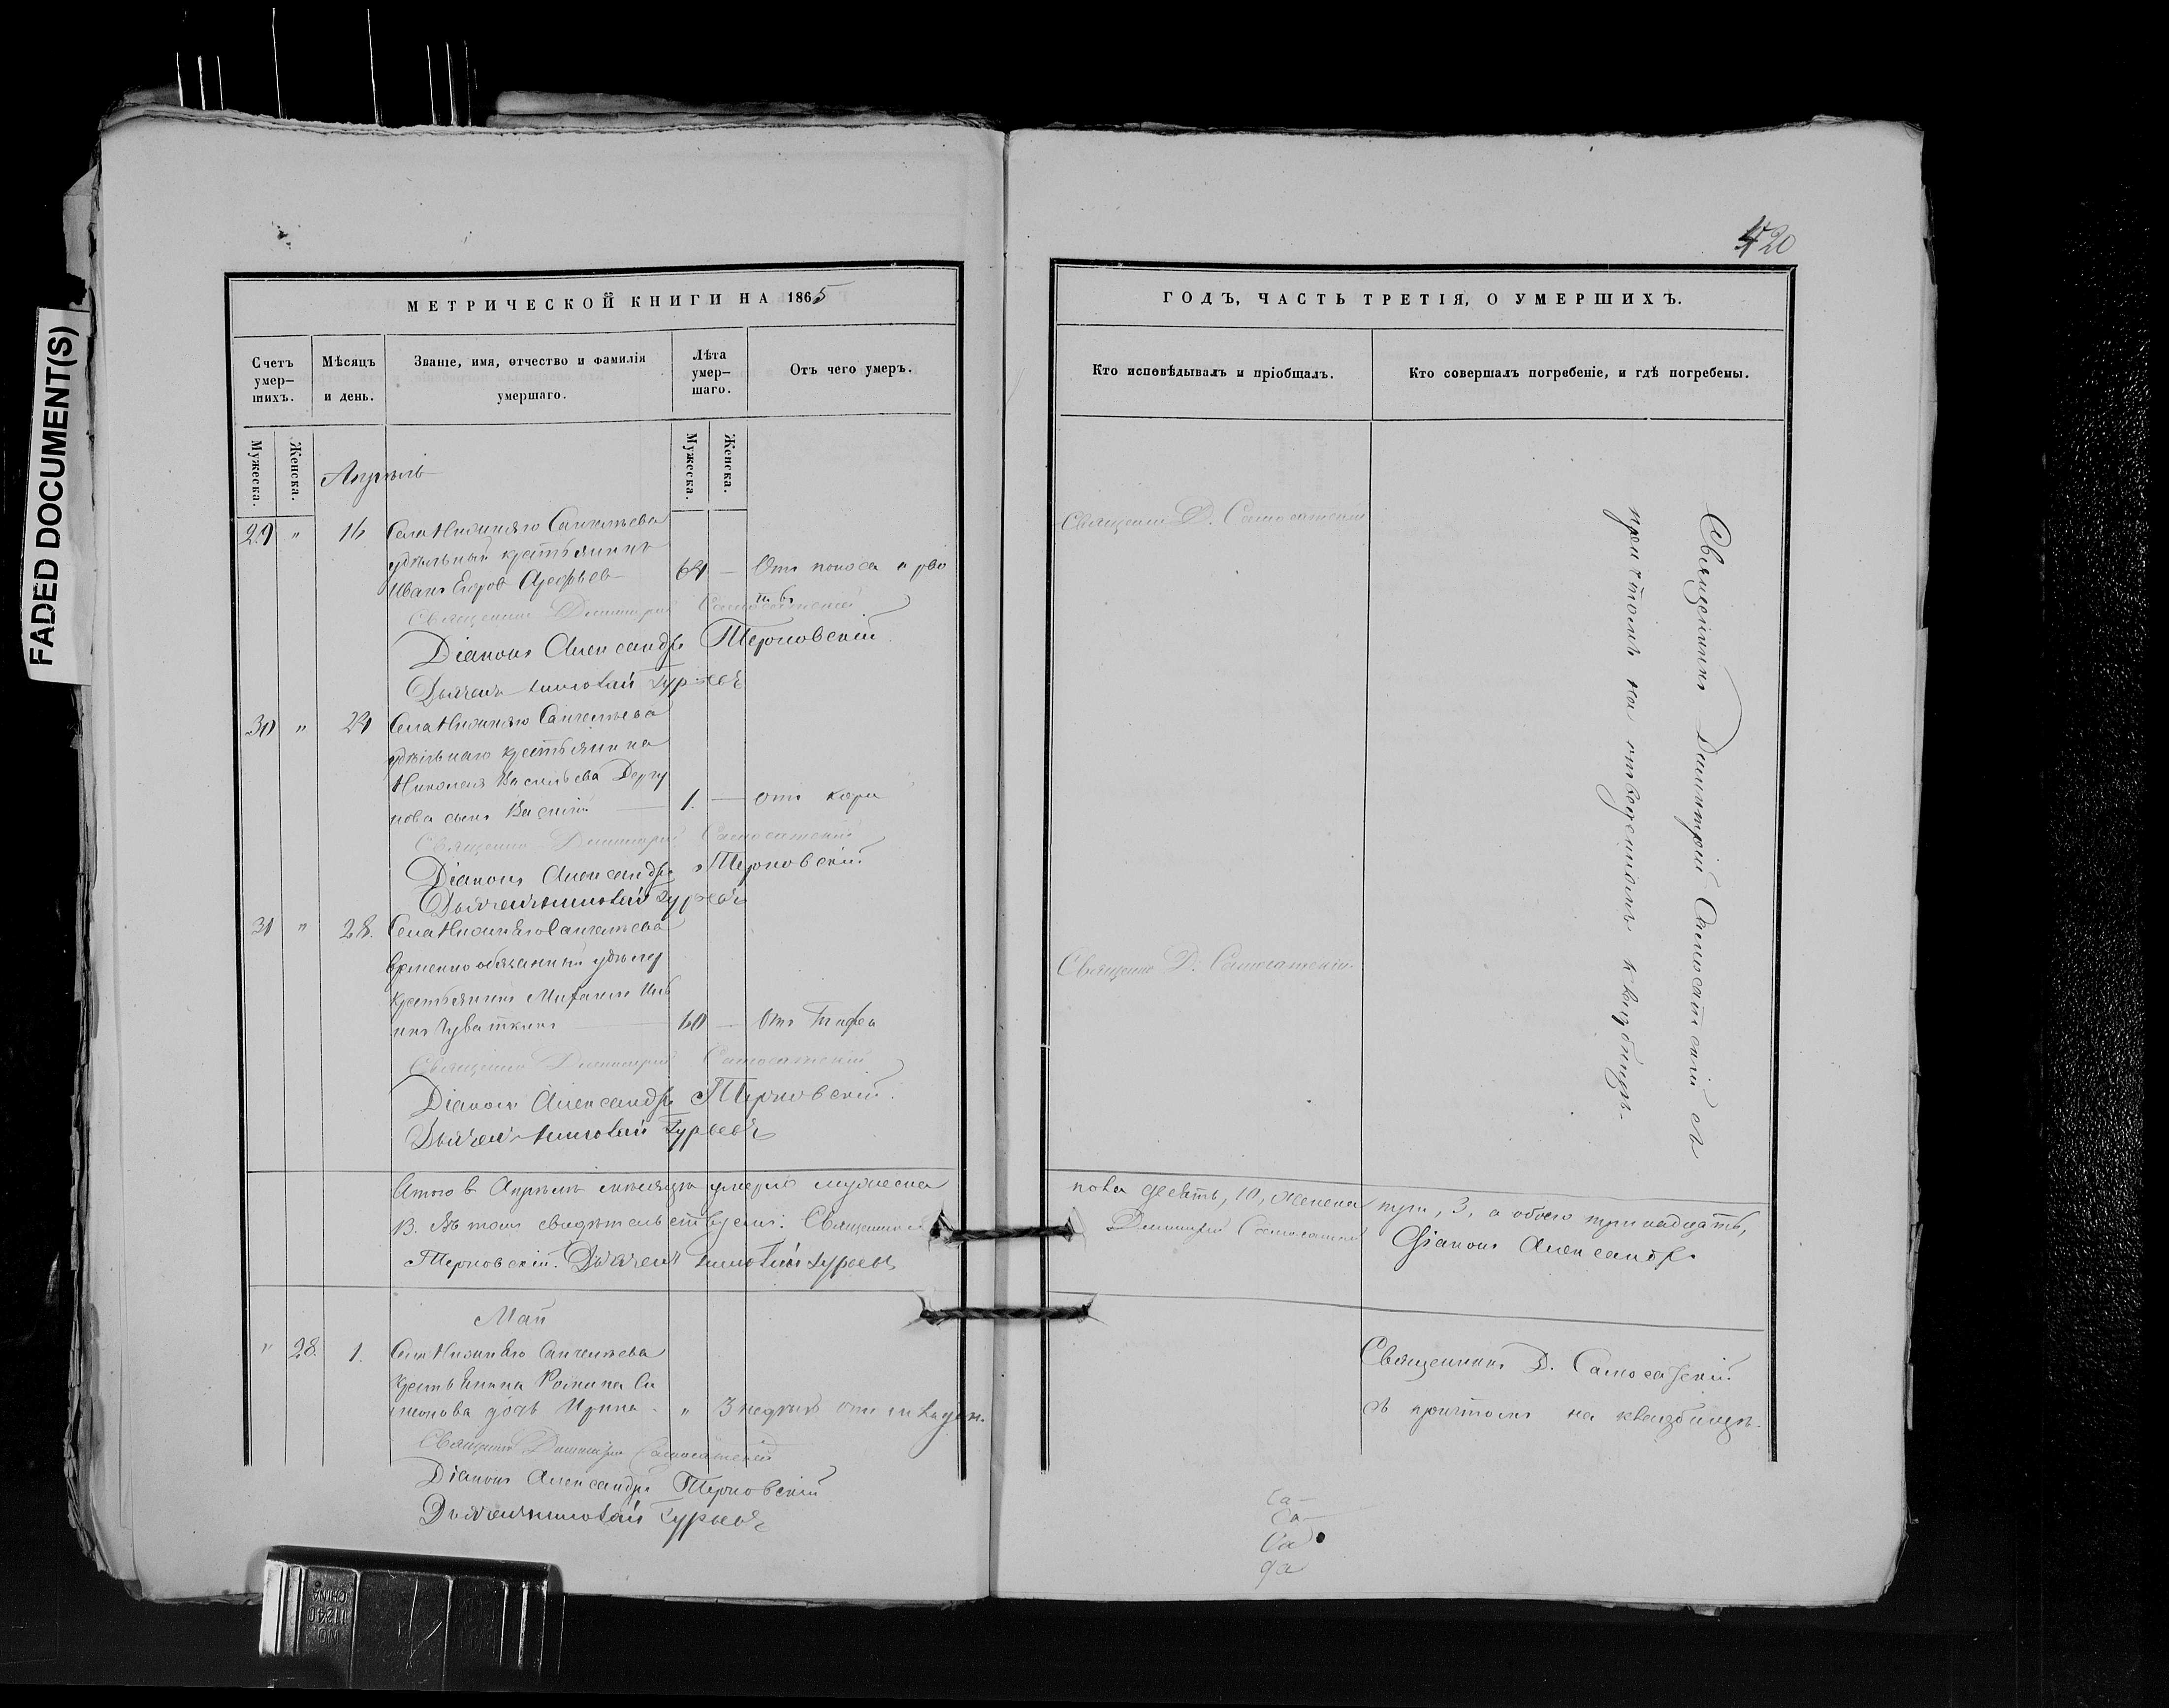 FADED DOCUMENT(S)
420
МЕТРИЧЕСКОЙ КНИГИ НА 1865
ГОДЪ, ЧАСТЬ ТРЕТІЯ, О УМЕРШИХЪ.
Счетъ умер-
шихъ.
Мѣсяцъ
и день.
Званіе, имя, отчество и фамилія
умершаго.
Лѣта
умер-
шаго.
Отъ чего умеръ.
Кто исповѣдывалъ и пріобщалъ.
Кто совершалъ погребеніе, и гдѣ погребены.
Мужеска.
Женска.
Мужеска.
Женска.
Апрѣль
29 " 16 Села Нижняго Санчелѣева
удѣльный крестьянинъ
Иванъ Егоровъ Арефьевъ 64 — Отъ поноса и рво
ты
Священникъ Димитрій Самосатскій
Діаконъ Александръ Терновскій
Дьячекъ Гурьевъ
30 " 24 Села Нижняго Санчелѣева
удѣльнаго крестьянина
Николая Васильева Дергу
нова сынъ Василій — 1. — отъ кори
Священникъ Димитрій Самосатскій
Діаконъ Александръ Терновскій
Дьячекъ Гурьевъ
31 " 28. Села Нижняго Санчелѣева
временно обязанный
крестьянинъ Михаилъ
60 — Отъ
Священникъ Димитрій Самосатскій
Діаконъ Александръ Терновскій.
Дьячекъ Гурьевъ
Священникъ Д. Самосатскій
Священникъ Д. Самосатскій.
Священникъ Димитрій Самосатскій съ
причтомъ на отведенномъ кладбищѣ.
Итого въ Апрѣлѣ мѣсяцѣ умерло мужеска
пола десять, 10, женска три, 3, а обоего тринадцать,
13. Въ томъ свидѣтельствуемъ: Священникъ
Димитрій Самосатскій Діаконъ Александръ
Терновскій. Дьячекъ Гурьевъ
Май
" 28. 1. Села Нижняго Санчелѣева
крестьянина Романа Си
монова дочь Ирина. " 3 недѣль отъ младен.
Священникъ Димитрій Самосатскій
Діаконъ Александръ Терновскій
Дьячекъ Гурьевъ
Священникъ Д. Самосатскій
съ причтомъ на кладбищѣ.
Са
Са
Са
да